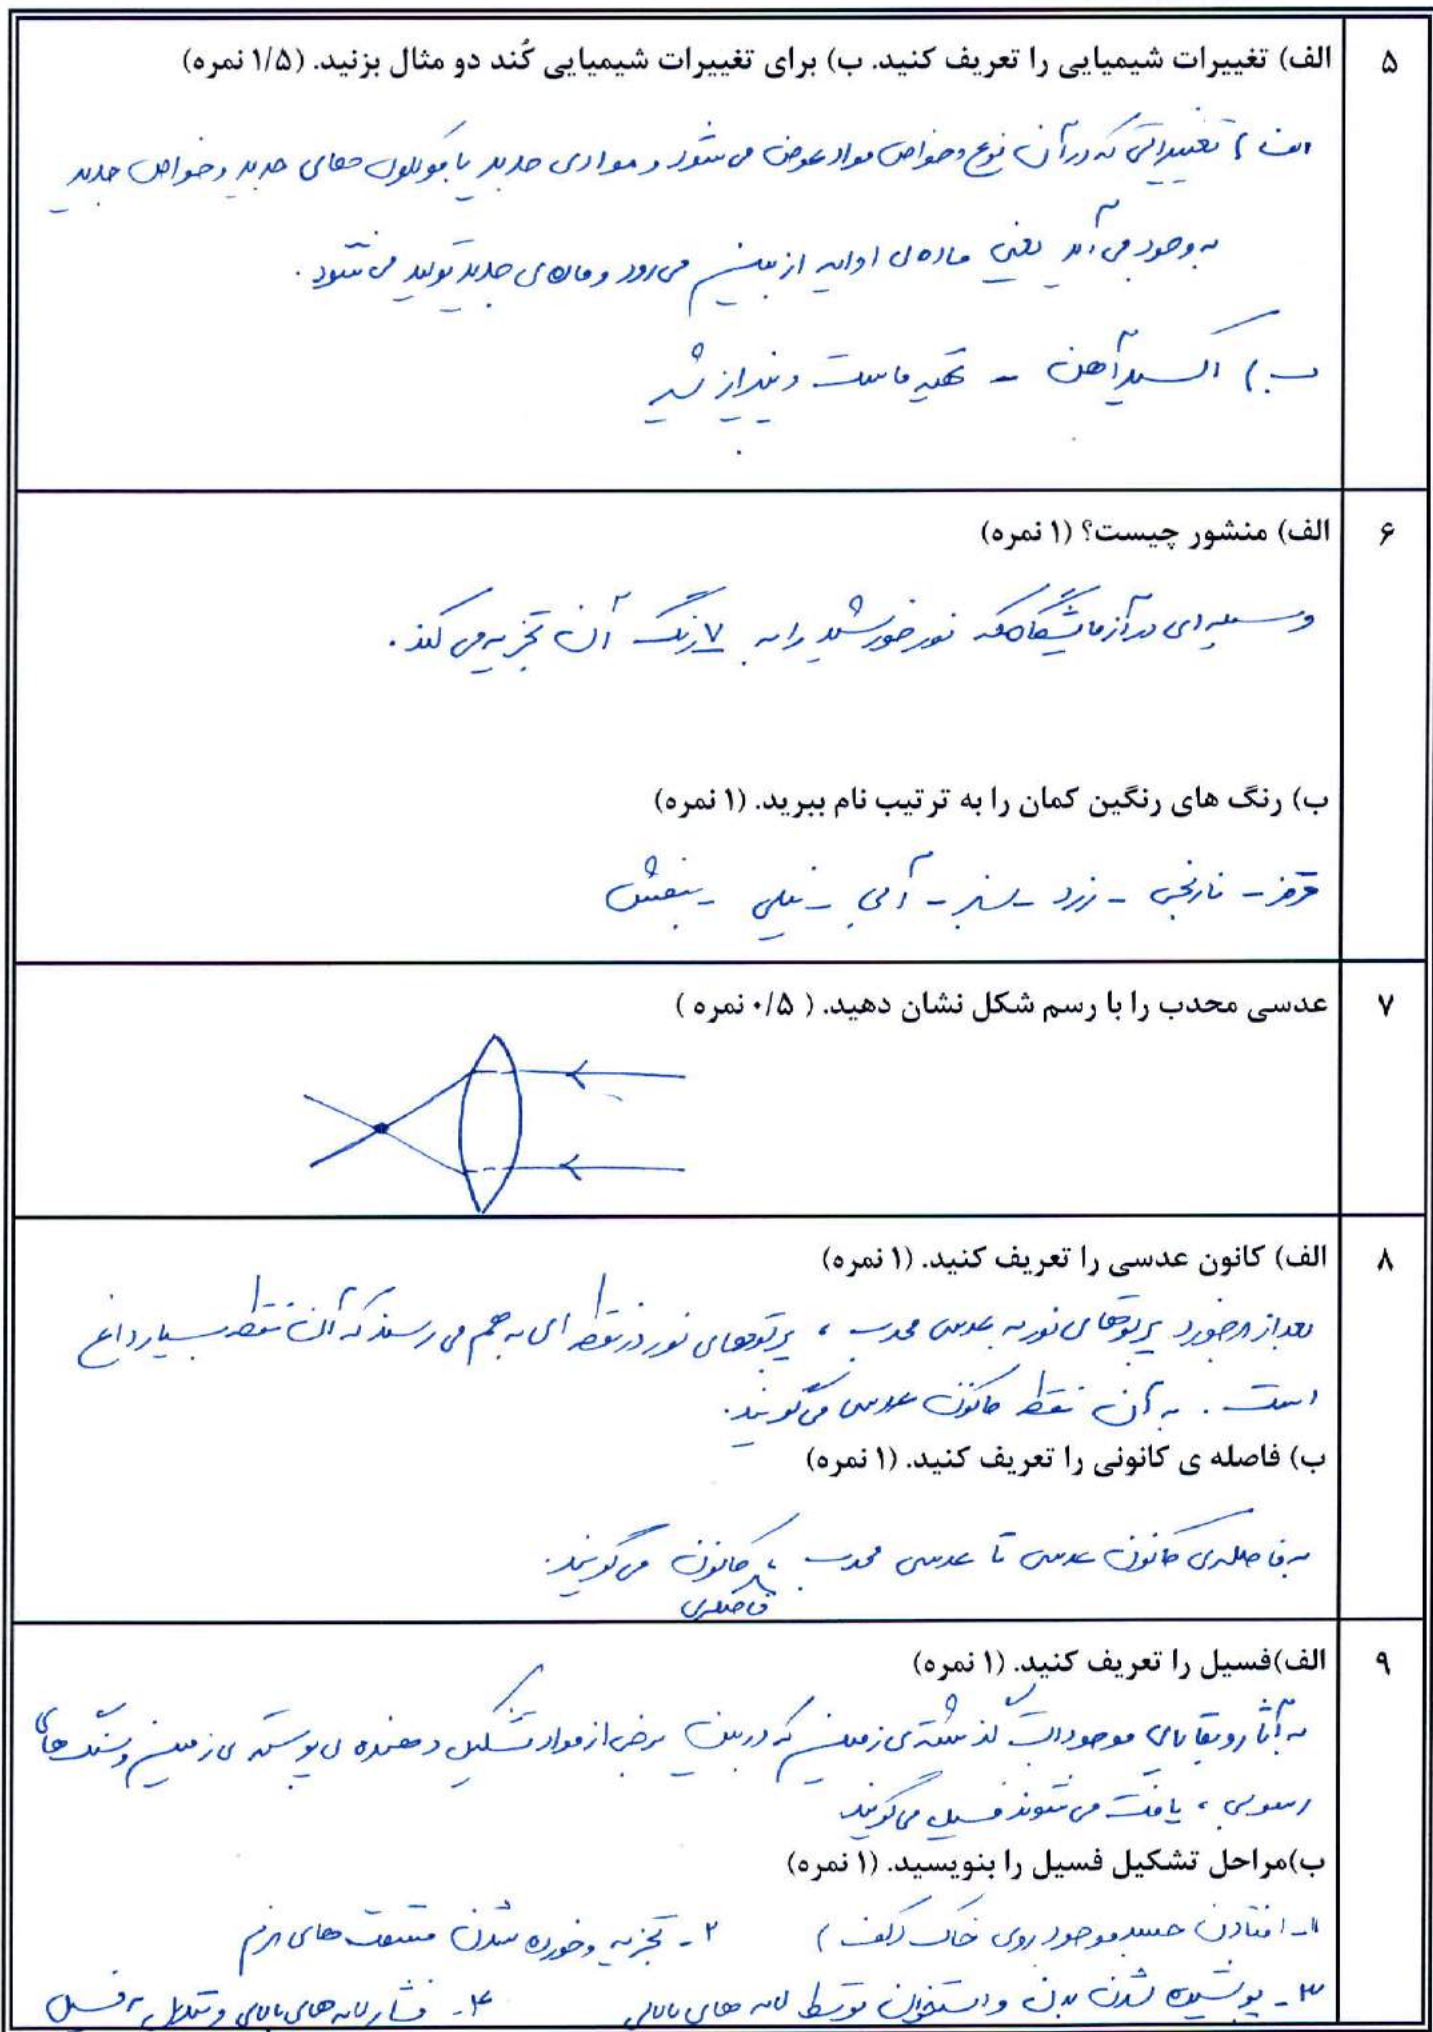 ۵
الف) تغییرات شیمیایی را تعریف کنید. ب) برای تغییرات شیمیایی کُند دو مثال بزنید. (۱/۵ نمره)
الف) تغییراتی که در آن نوع و خواص مواد عوض می شود و موادی جدید با مولکول های جدید و خواص جدید
به وجود می آید یعنی ماده ی اولیه از بین می رود و ماده ی جدید تولید می شود.
ب) اکسید آهن - تهیه ماست و پنیر از شیر
۶
الف) منشور چیست؟ (۱ نمره)
وسیله ای در آزمایشگاه که نور خورشید را به ۷ رنگ آن تجزیه می کند.
ب) رنگ های رنگین کمان را به ترتیب نام ببرید. (۱ نمره)
قرمز - نارنجی - زرد - سبز - آبی - نیلی - بنفش
۷
عدسی محدب را با رسم شکل نشان دهید. ( ۰/۵ نمره )
۸
الف) کانون عدسی را تعریف کنید. (۱ نمره)
بعد از برخورد پرتوهای نور به عدسی محدب ، پرتوهای نور در نقطه ای به هم می رسند که آن نقطه بسیار داغ
است . به آن نقطه کانون عدسی می گویند.
ب) فاصله ی کانونی را تعریف کنید. (۱ نمره)
به فاصله ی کانون عدسی تا عدسی محدب ، کانون می گویند.
فاصله ی
۹
الف)فسیل را تعریف کنید. (۱ نمره)
به آثار و بقایای موجودات گذشته ی زمین که در بین برخی از مواد تشکیل دهنده ی پوسته ی زمین و سنگ های
رسوبی ، یافت می شوند فسیل می گویند
ب)مراحل تشکیل فسیل را بنویسید. (۱ نمره)
۱- افتادن جسد موجود روی خاک (کف) ۲- تجزیه و خورده شدن قسمت های نرم
۳- پوشیده شدن بدن و استخوان توسط لایه های بالایی ۴- فشار لایه های بالایی و تبدیل به فسیل